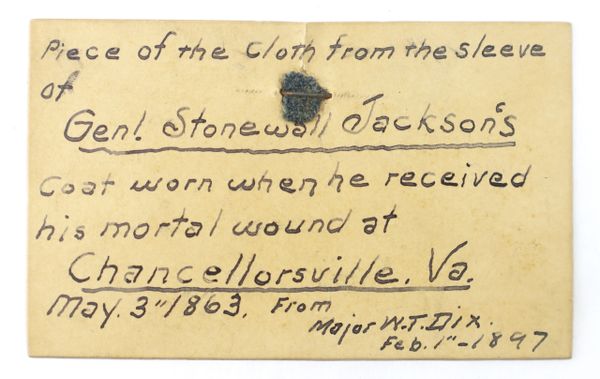 Piece of the Cloth from the sleeve
of
Genl. Stonewall Jackson's
Coat worn when he received
his mortal wound at
Chancellorsville. Va.
May. 3" 1863. From
Major W.T. Dix.
Feb. 1"-1897